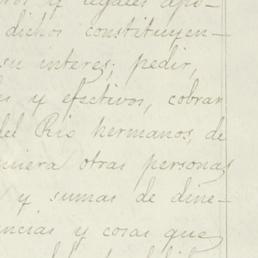 y legales apo-
dichos constituyen-
su interes; pedir,
y efectivos, cobrar
del Rio hermanos, de
quiera otras personas
y sumas de dine-
y cosas que